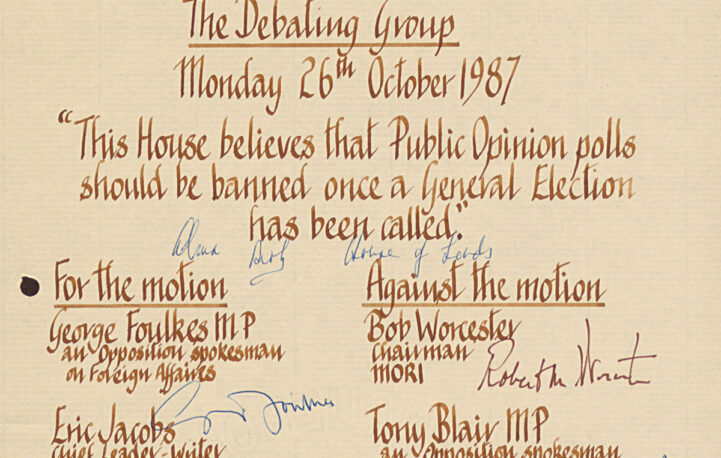 The Debating Group
Monday 26th October 1987
"This House believes that Public Opinion polls
should be banned once a General Election
has been called."
House of Lords
For the motion
George Foulkes MP
an Opposition spokesman
on Foreign Affaires
Eric Jacobs
Chief Leader-Writer
Against the motion
Bob Worcester
Chairman
MORI
Robert M Worcester
Tony Blair MP
an Opposition spokesman